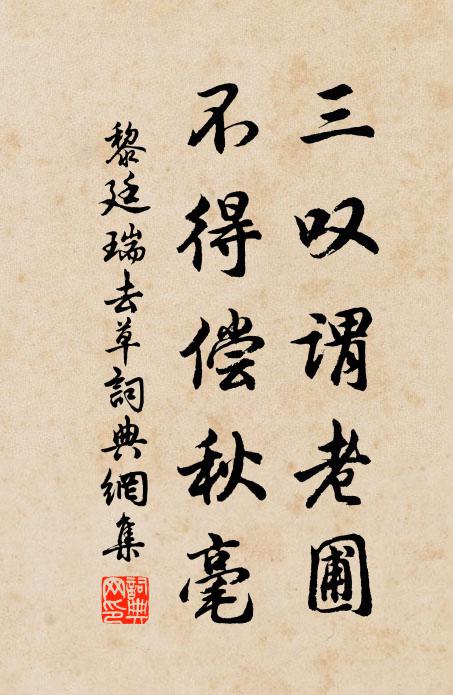 三叹谓老圃
不得偿秋毫
黎廷瑞去草詞典網集
詞典网印